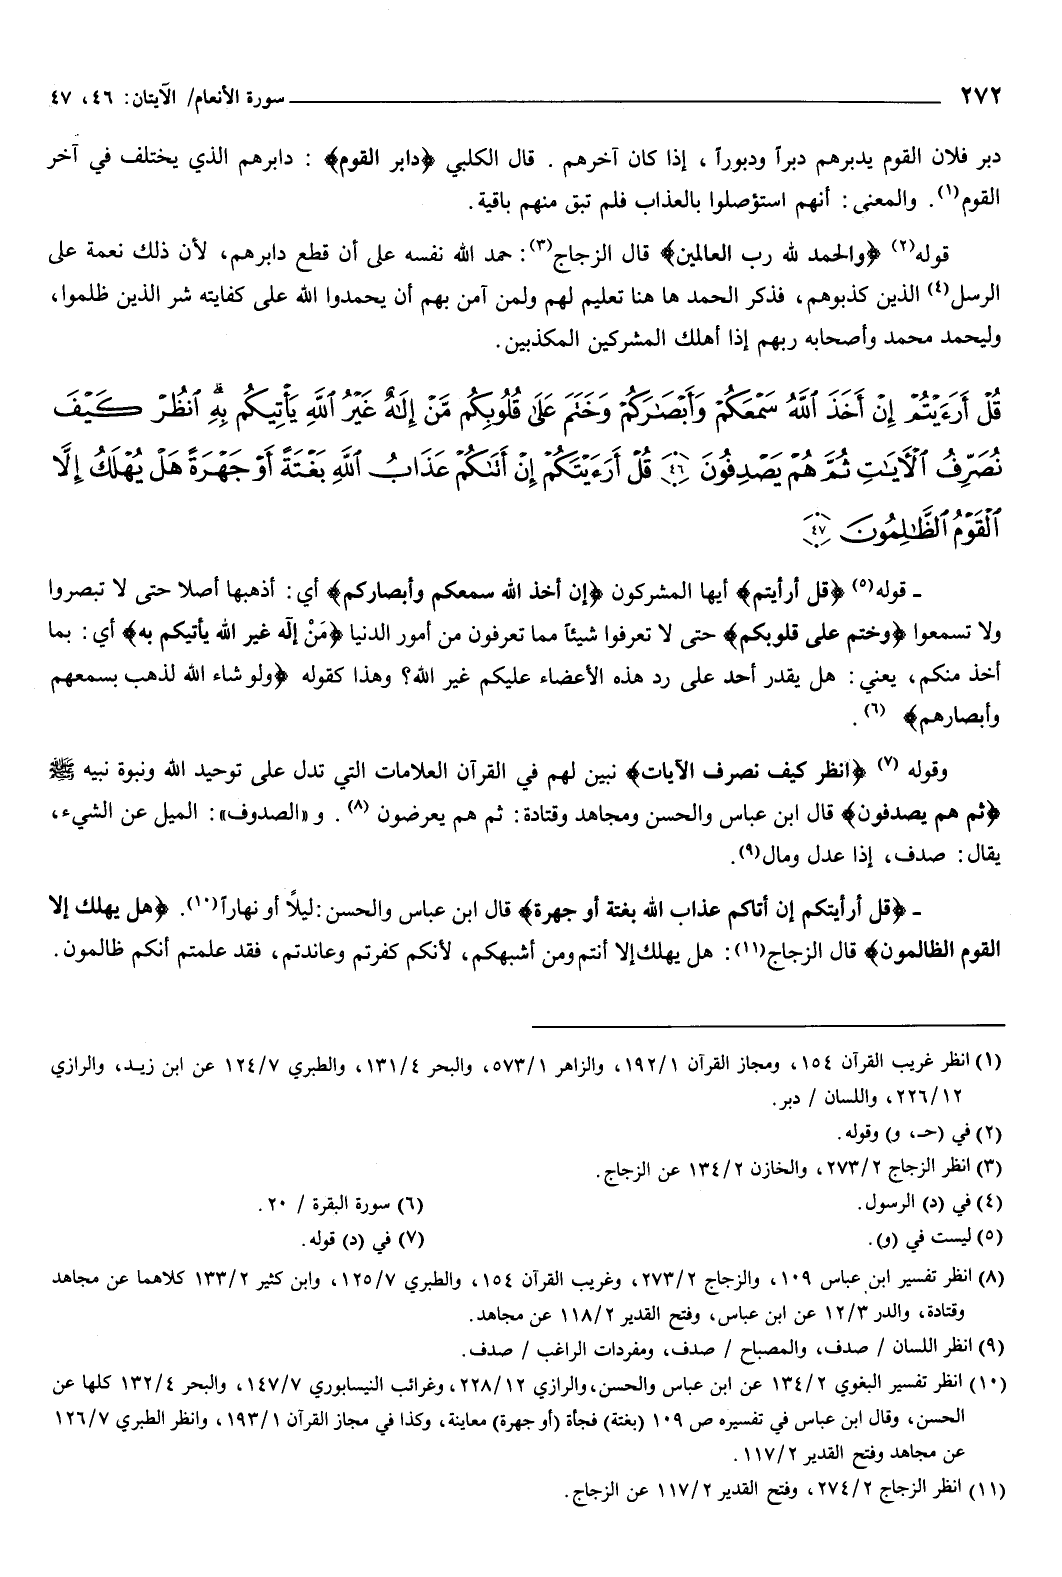 ٢٧٢ سورة الأنعام/ الآيتان: ٤٦، ٤٧
دبر فلان القوم يدبرهم دبراً ودبوراً ، إذا كان آخرهم . قال الكلبي ﴿دابر القوم﴾ : دابرهم الذي يختلف في آخر
القوم(١). والمعنى: أنهم استؤصلوا بالعذاب فلم تبق منهم باقية.
قوله(٢) ﴿والحمد لله رب العالمين﴾ قال الزجاج(٣): حمد الله نفسه على أن قطع دابرهم، لأن ذلك نعمة على
الرسل(٤) الذين كذبوهم، فذكر الحمد ها هنا تعليم لهم ولمن آمن بهم أن يحمدوا الله على كفايته شر الذين ظلموا،
وليحمد محمد وأصحابه ربهم إذا أهلك المشركين المكذبين.
قُلْ أَرَءَيْتُمْ إِنْ أَخَذَ ٱللَّهُ سَمْعَكُمْ وَأَبْصَـٰرَكُمْ وَخَتَمَ عَلَىٰ قُلُوبِكُم مَّنْ إِلَـٰهٌ غَيْرُ ٱللَّهِ يَأْتِيكُم بِهِۗ ٱنظُرْ كَيْفَ
نُصَرِّفُ ٱلْأَيَـٰتِ ثُمَّ هُمْ يَصْدِفُونَ ٤٦ قُلْ أَرَءَيْتَكُمْ إِنْ أَتَىٰكُمْ عَذَابُ ٱللَّهِ بَغْتَةً أَوْ جَهْرَةً هَلْ يُهْلَكُ إِلَّا
ٱلْقَوْمُ ٱلظَّـٰلِمُونَ ٤٧
ـ قوله(٥) ﴿قل أرأيتم﴾ أيها المشركون ﴿إن أخذ الله سمعكم وأبصاركم﴾ أي: أذهبها أصلا حتى لا تبصروا
ولا تسمعوا ﴿وختم على قلوبكم﴾ حتى لا تعرفوا شيئاً مما تعرفون من أمور الدنيا ﴿مَنْ إلٓه غير الله يأتيكم به﴾ أي: بما
أخذ منكم، يعني: هل يقدر أحد على رد هذه الأعضاء عليكم غير الله؟ وهذا كقوله ﴿ولو شاء الله لذهب بسمعهم
وأبصارهم﴾ (٦).
وقوله (٧) ﴿انظر كيف نصرف الآيات﴾ نبين لهم في القرآن العلامات التي تدل على توحيد الله ونبوة نبيه ﷺ
﴿ثم هم يصدفون﴾ قال ابن عباس والحسن ومجاهد وقتادة: ثم هم يعرضون (٨) . و «الصدوف»: الميل عن الشيء،
يقال: صدف، إذا عدل ومال(٩).
ـ ﴿قل أرأيتكم إن أتاكم عذاب الله بغتة أو جهرة﴾ قال ابن عباس والحسن :ليلًا أو نهاراً(١٠). ﴿هل يهلك إلا
القوم الظالمون﴾ قال الزجاج(١١): هل يهلك إلا أنتم ومن أشبهكم، لأنكم كفرتم وعاندتم، فقد علمتم أنكم ظالمون.
(١) انظر غريب القرآن ١٥٤، ومجاز القرآن ١٩٢/١، والزاهر ٥٧٣/١، والبحر ١٣١/٤، والطبري ١٢٤/٧ عن ابن زيد، والرازي
٢٢٦/١٢، واللسان / دبر.
(٢) في (حـ، و) وقوله.
(٣) انظر الزجاج ٢٧٣/٢، والخازن ١٣٤/٢ عن الزجاج.
(٤) في (د) الرسول. (٦) سورة البقرة / ٢٠.
(٥) ليست في (و). (٧) في (د) قوله.
(٨) انظر تفسير ابن عباس ١٠٩، والزجاج ٢٧٣/٢، وغريب القرآن ١٥٤، والطبري ١٢٥/٧، وابن كثير ١٣٣/٢ كلاهما عن مجاهد
وقتادة، والدر ١٢/٣ عن ابن عباس، وفتح القدير ١١٨/٢ عن مجاهد.
(٩) انظر اللسان / صدف، والمصباح / صدف، ومفردات الراغب / صدف.
(١٠) انظر تفسير البغوي ١٣٤/٢ عن ابن عباس والحسن،والرازي ٢٢٨/١٢، وغرائب النيسابوري ١٤٧/٧، والبحر ١٣٢/٤ كلها عن
الحسن، وقال ابن عباس في تفسيره ص ١٠٩ (بغتة) فجأة (أو جهرة) معاينة، وكذا في مجاز القرآن ١٩٣/١، وانظر الطبري ١٢٦/٧
عن مجاهد وفتح القدير ١١٧/٢.
(١١) انظر الزجاج ٢٧٤/٢، وفتح القدير ١١٧/٢ عن الزجاج.